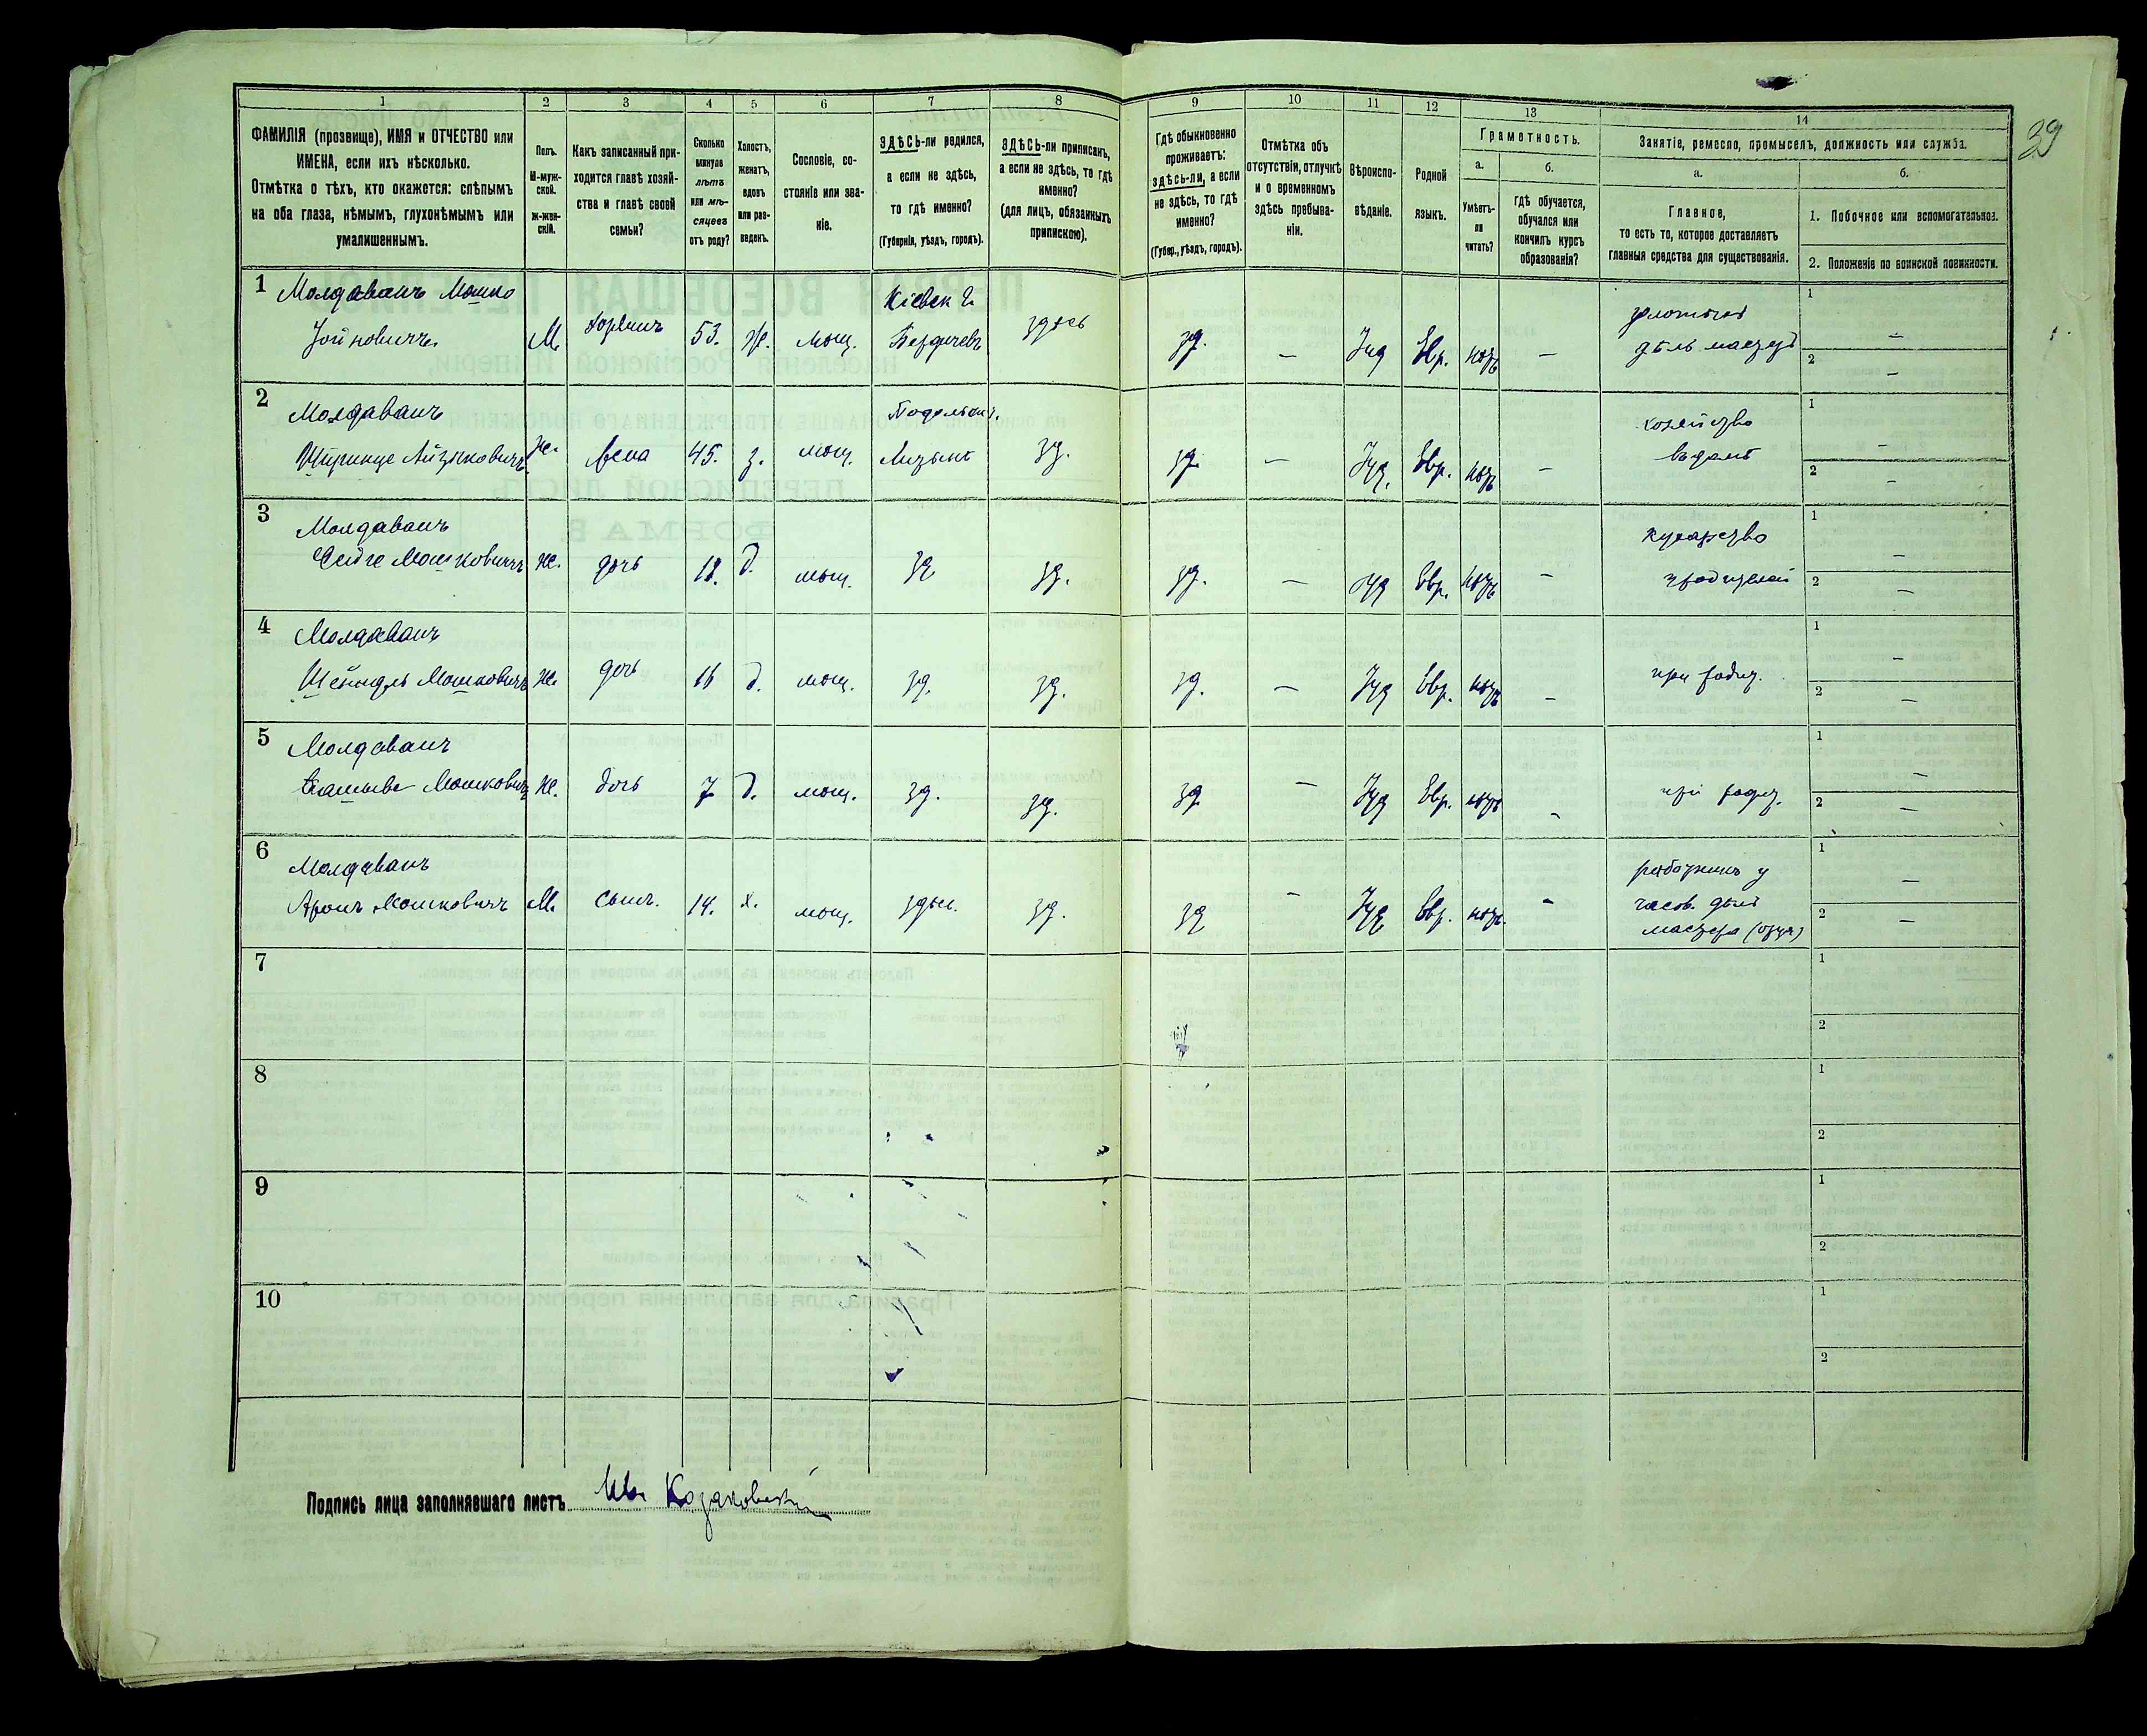 1 2 3 4 5 6 7 8 9 10 11 12 13 14
29
ФАМИЛІЯ (прозвище), ИМЯ и ОТЧЕСТВО или
ИМЕНА, если ихъ нѣсколько.
Отмѣтка о тѣхъ, кто окажется: слѣпымъ
на оба глаза, нѣмымъ, глухонѣмымъ или
умалишеннымъ.
Полъ.
М-муж-
ской.
ж-жен-
скій.
Какъ записанный при-
ходится главѣ хозяй-
ства и главѣ своей
семьи?
Сколько
минуло
лѣтъ
или мѣ-
сяцевъ
отъ роду?
Холостъ,
женатъ,
вдовъ
или раз-
веденъ.
Сословіе, со-
стояніе или зва-
ніе.
ЗДѢСЬ-ли родился,
а если не здѣсь,
то гдѣ именно?
(Губернія, уѣздъ, городъ).
ЗДѢСЬ-ли приписанъ,
а если не здѣсь, то гдѣ
именно?
(для лицъ, обязанныхъ
припискою).
Гдѣ обыкновенно
проживаетъ:
здѣсь-ли, а если
не здѣсь, то гдѣ
именно?
(Губер., уѣздъ, городъ).
Отмѣтка объ
отсутствіи, отлучкѣ
и о временномъ
здѣсь пребыва-
ніи.
Вѣроиспо-
вѣданіе.
Родной
языкъ.
Грамотность.
а.
Умѣетъ-
ли
читать?
б.
гдѣ обучается,
обучался или
кончилъ курсъ
образованія?
Занятіе, ремесло, промыселъ, должность или служба.
а.
Главное,
то есть то, которое доставляетъ
главныя средства для существованія.
б.
1. Побочное или вспомогательное.
2. Положеніе по воинской повинности.
1 Молдаванъ Мошко Кіевск г.
М. хозяинъ 53. ж. мѣщ. Бердичевъ здѣсь зд. — Іуд Евр. нѣтъ —
дѣлъ мастеръ
1 —
2 —
2 Молдаванъ хозяйство
Айзиковичъ Ж. жена 45. з. мѣщ. зд. зд. — Іуд. Евр. нѣтъ —
1 —
2 —
3 Молдаванъ
Мошковичъ Ж. дочь 18. д. мѣщ. зд зд. зд. — Іуд Евр. нѣтъ —
1 —
2 —
4 Молдаванъ
Шейндль Мошковичъ Ж. дочь 16 д. мѣщ. зд. зд. зд. — Іуд Евр. нѣтъ — при родит.
1 —
2 —
5 Молдаванъ
Мошковичъ Ж. дочь 7 д. мѣщ. зд. зд. зд. — Іуд Евр. нѣтъ — при родит.
1 —
2 —
6 Молдаванъ
Аронъ Мошковичъ М. сынъ. 14. х. мѣщ. здѣсь. зд. зд — Іуд Евр. нѣтъ —
работникъ у
часов. дѣлъ
мастера (отца)
1 —
2 —
7 1
2
8 1
2
9 1
2
10 1
2
Подпись лица заполнявшаго листъ Козаковскій